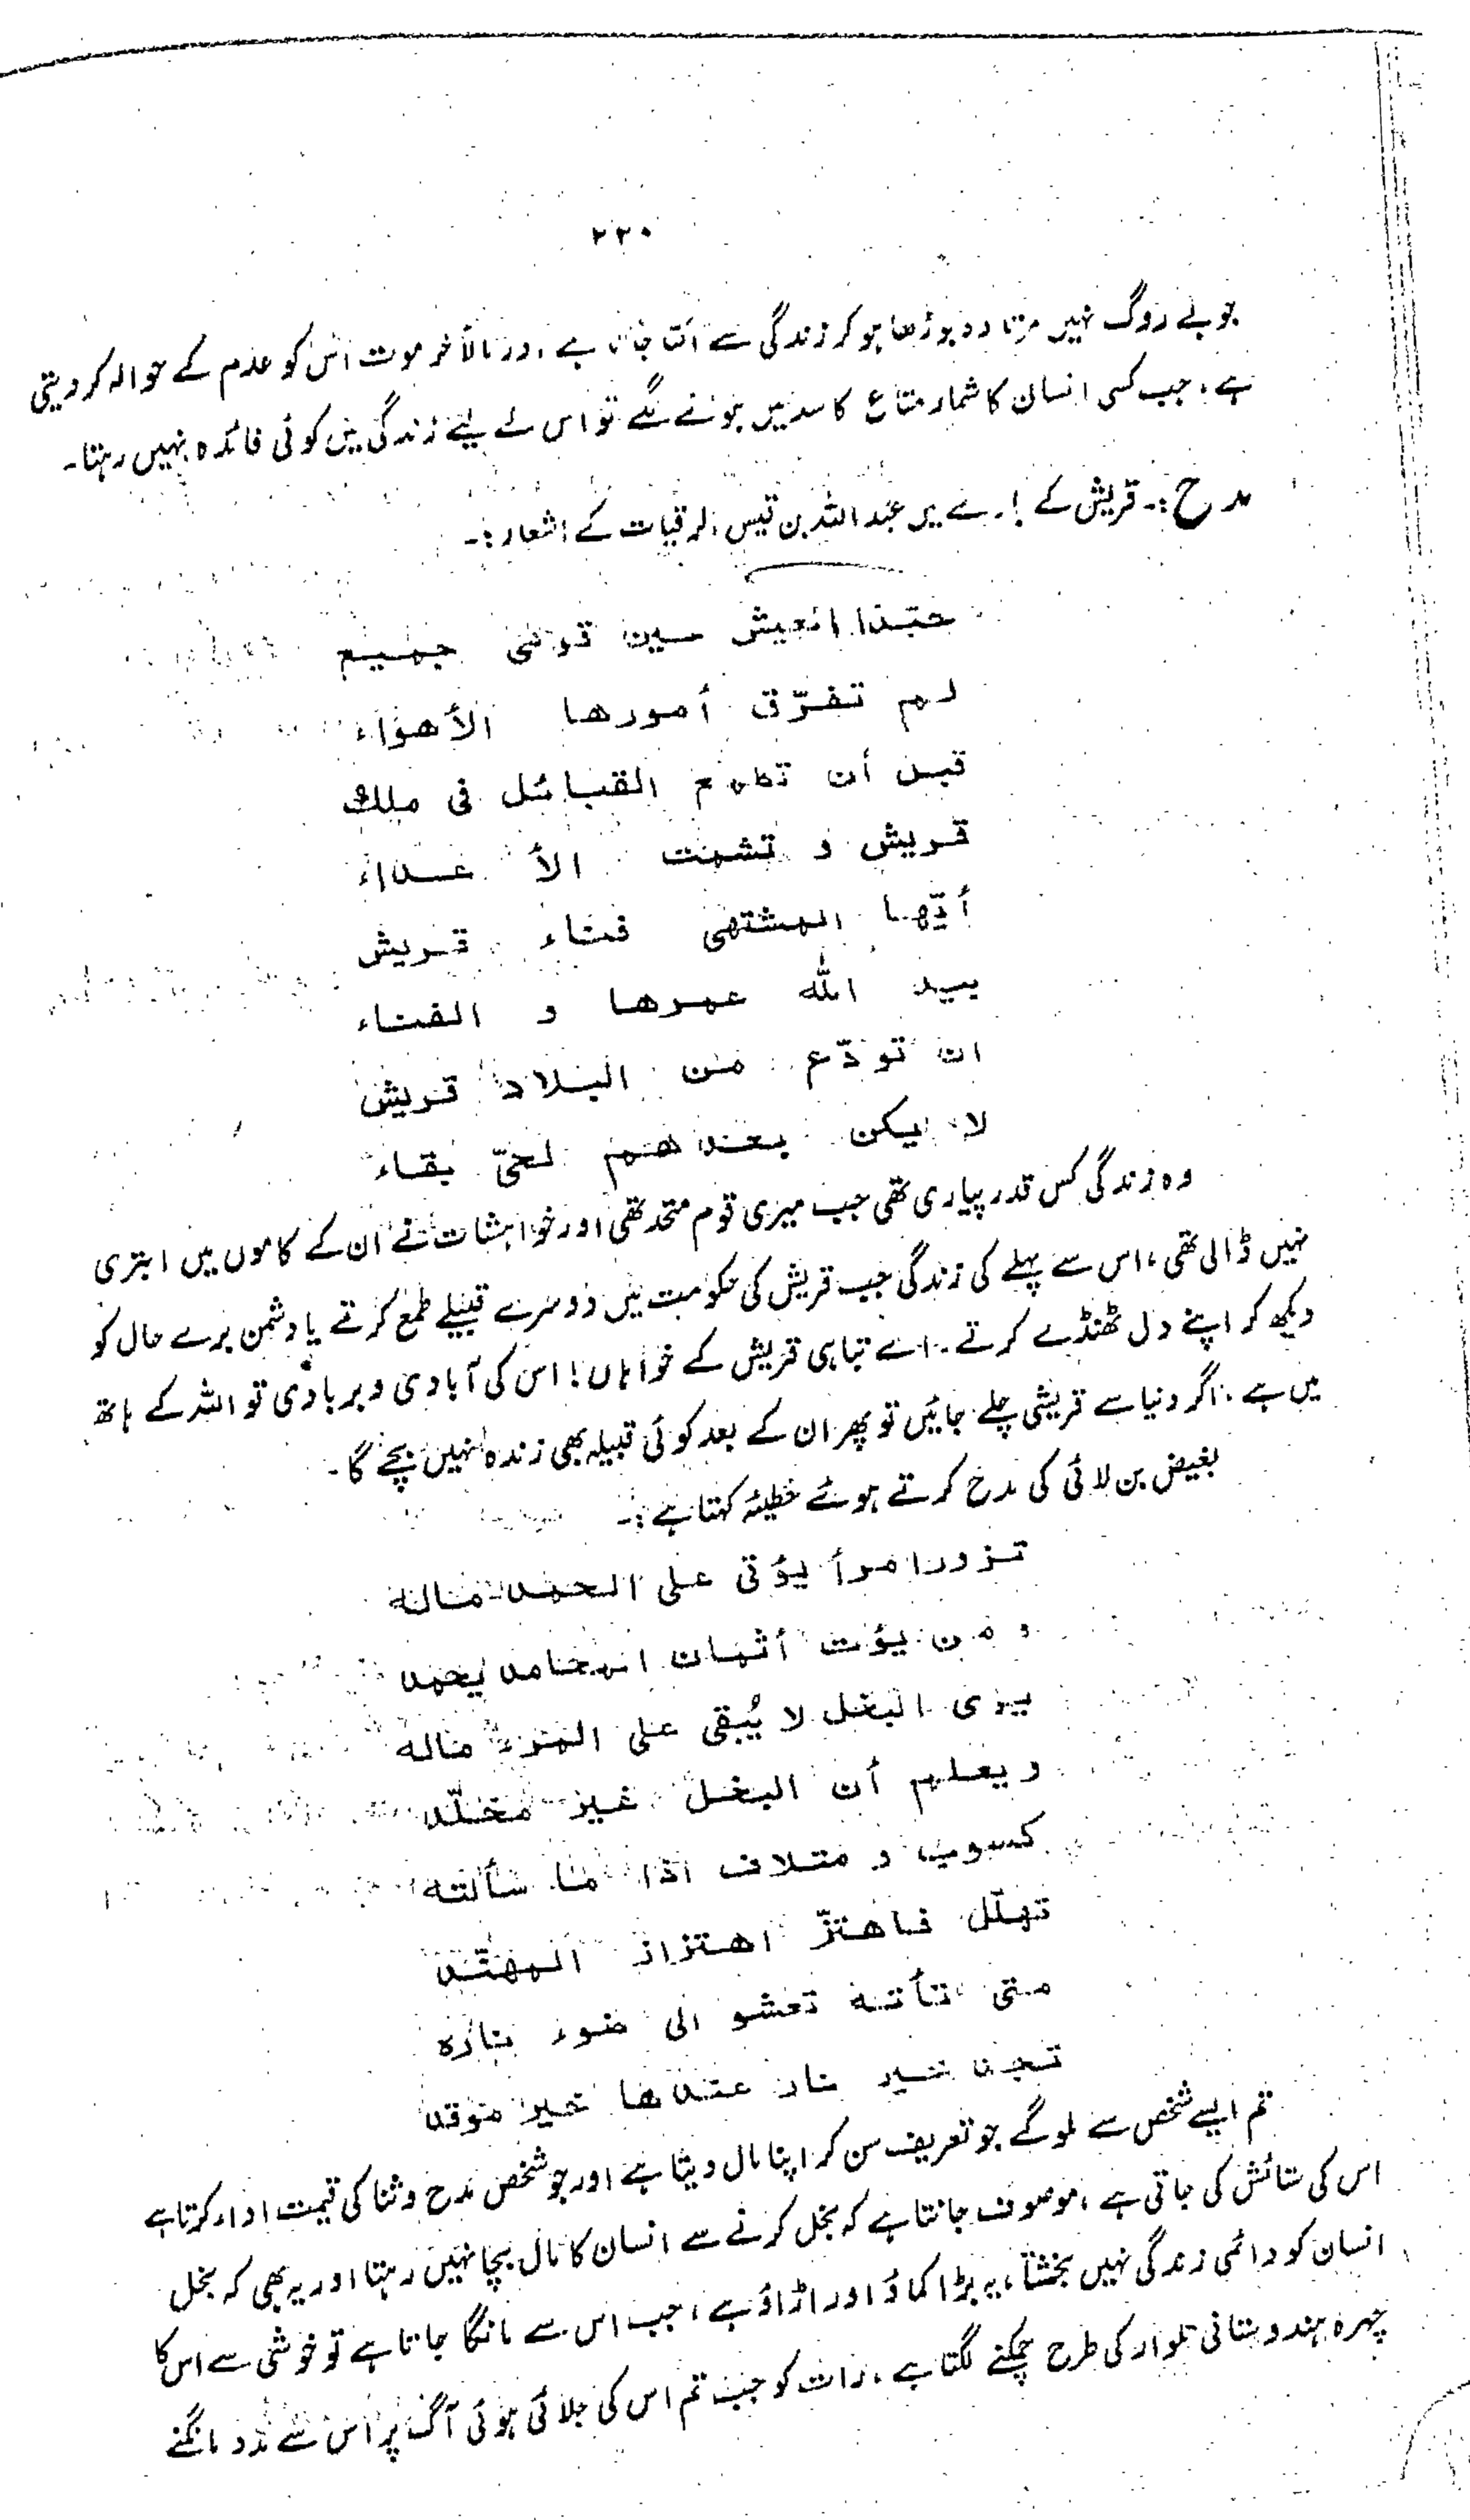 ۲۲۰
جو بے روگ نہیں مرتا وہ بوڑھا ہو کر زندگی سے اکتا جاتا ہے، اور بالآخر موت اس کو عدم کے حوالہ کر دیتی
ہے، جب کسی انسان کا شمار متاع کاسد میں ہونے لگے تو اس کے لیے زندگی میں کوئی فائدہ نہیں رہتا۔
مدح :۔ قریش کے بارے میں عبداللہ بن قیس الرقیات کے اشعار :۔
حبّذا العيش حين قومى جميع
لم تفرّق أمورها الأهواء
قبل أن تطمع القبائل فى ملك
قريش و تشمت الأعداء
أيّها المشتهى فناء قريش
بيد الله عمرها و الفناء
ان تودّع من البلاد قريش
لا يكن بعدهم لحىّ بقاء
وہ زندگی کس قدر پیاری تھی جب میری قوم متحد تھی اور خواہشات نے ان کے کاموں میں ابتری
نہیں ڈالی تھی، اس سے پہلے کی زندگی جب قریش کی حکومت میں دوسرے قبیلے طمع کرتے یا دشمن برے حال کو
دیکھ کر اپنے دل ٹھنڈے کرتے۔ اے تباہی قریش کے خواہاں! اس کی آبادی و بربادی تو اللہ کے ہاتھ
میں ہے۔ اگر دنیا سے قریشی چلے جائیں تو پھر ان کے بعد کوئی قبیلہ بھی زندہ نہیں بچے گا۔
بغیض بن لائی کی مدح کرتے ہوئے حطیئہ کہتا ہے :۔
تزور امرأ يؤتى على الحمد ماله
و من يؤت أثمان المحامد يحمد
يرى البخل لا يُبقى على المرء ماله
و يعلم أن البخل غير مخلّد
كسوب و متلاف اذا ما سألته
تهلّل فاهتزّ اهتزاز المهنّد
متى تأته تعشو الى ضوء ناره
تجد خير نار عندها خير موقد
تم ایسے شخص سے ملو گے جو تعریف سن کر اپنا مال دیتا ہے اور جو شخص مدح و ثنا کی قیمت ادا کرتا ہے
اس کی ستائش کی جاتی ہے، موصوف جانتا ہے کہ بخل کرنے سے انسان کا مال بچا نہیں رہتا اور یہ بھی کہ بخل
انسان کو دائمی زندگی نہیں بخشتا، یہ بڑا کماؤ اور اڑاؤ ہے، جب اس سے مانگا جاتا ہے تو خوشی سے اس کا
چہرہ ہندوستانی تلوار کی طرح چمکنے لگتا ہے، رات کو جب تم اس کی جلائی ہوئی آگ پر اس سے مدد مانگنے